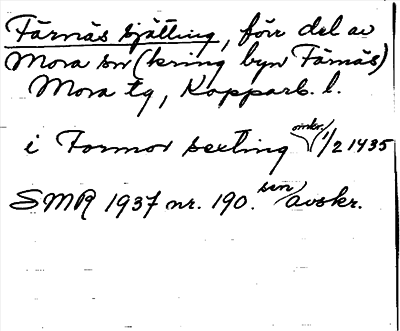 Färnäs sjätting, förr del av
Mora sn (kring byn Färnäs)
Mora tg, Kopparb. l.
i Formos sexting omkr. 1/2 1435
SMR 1937 nr. 190. sen avskr.